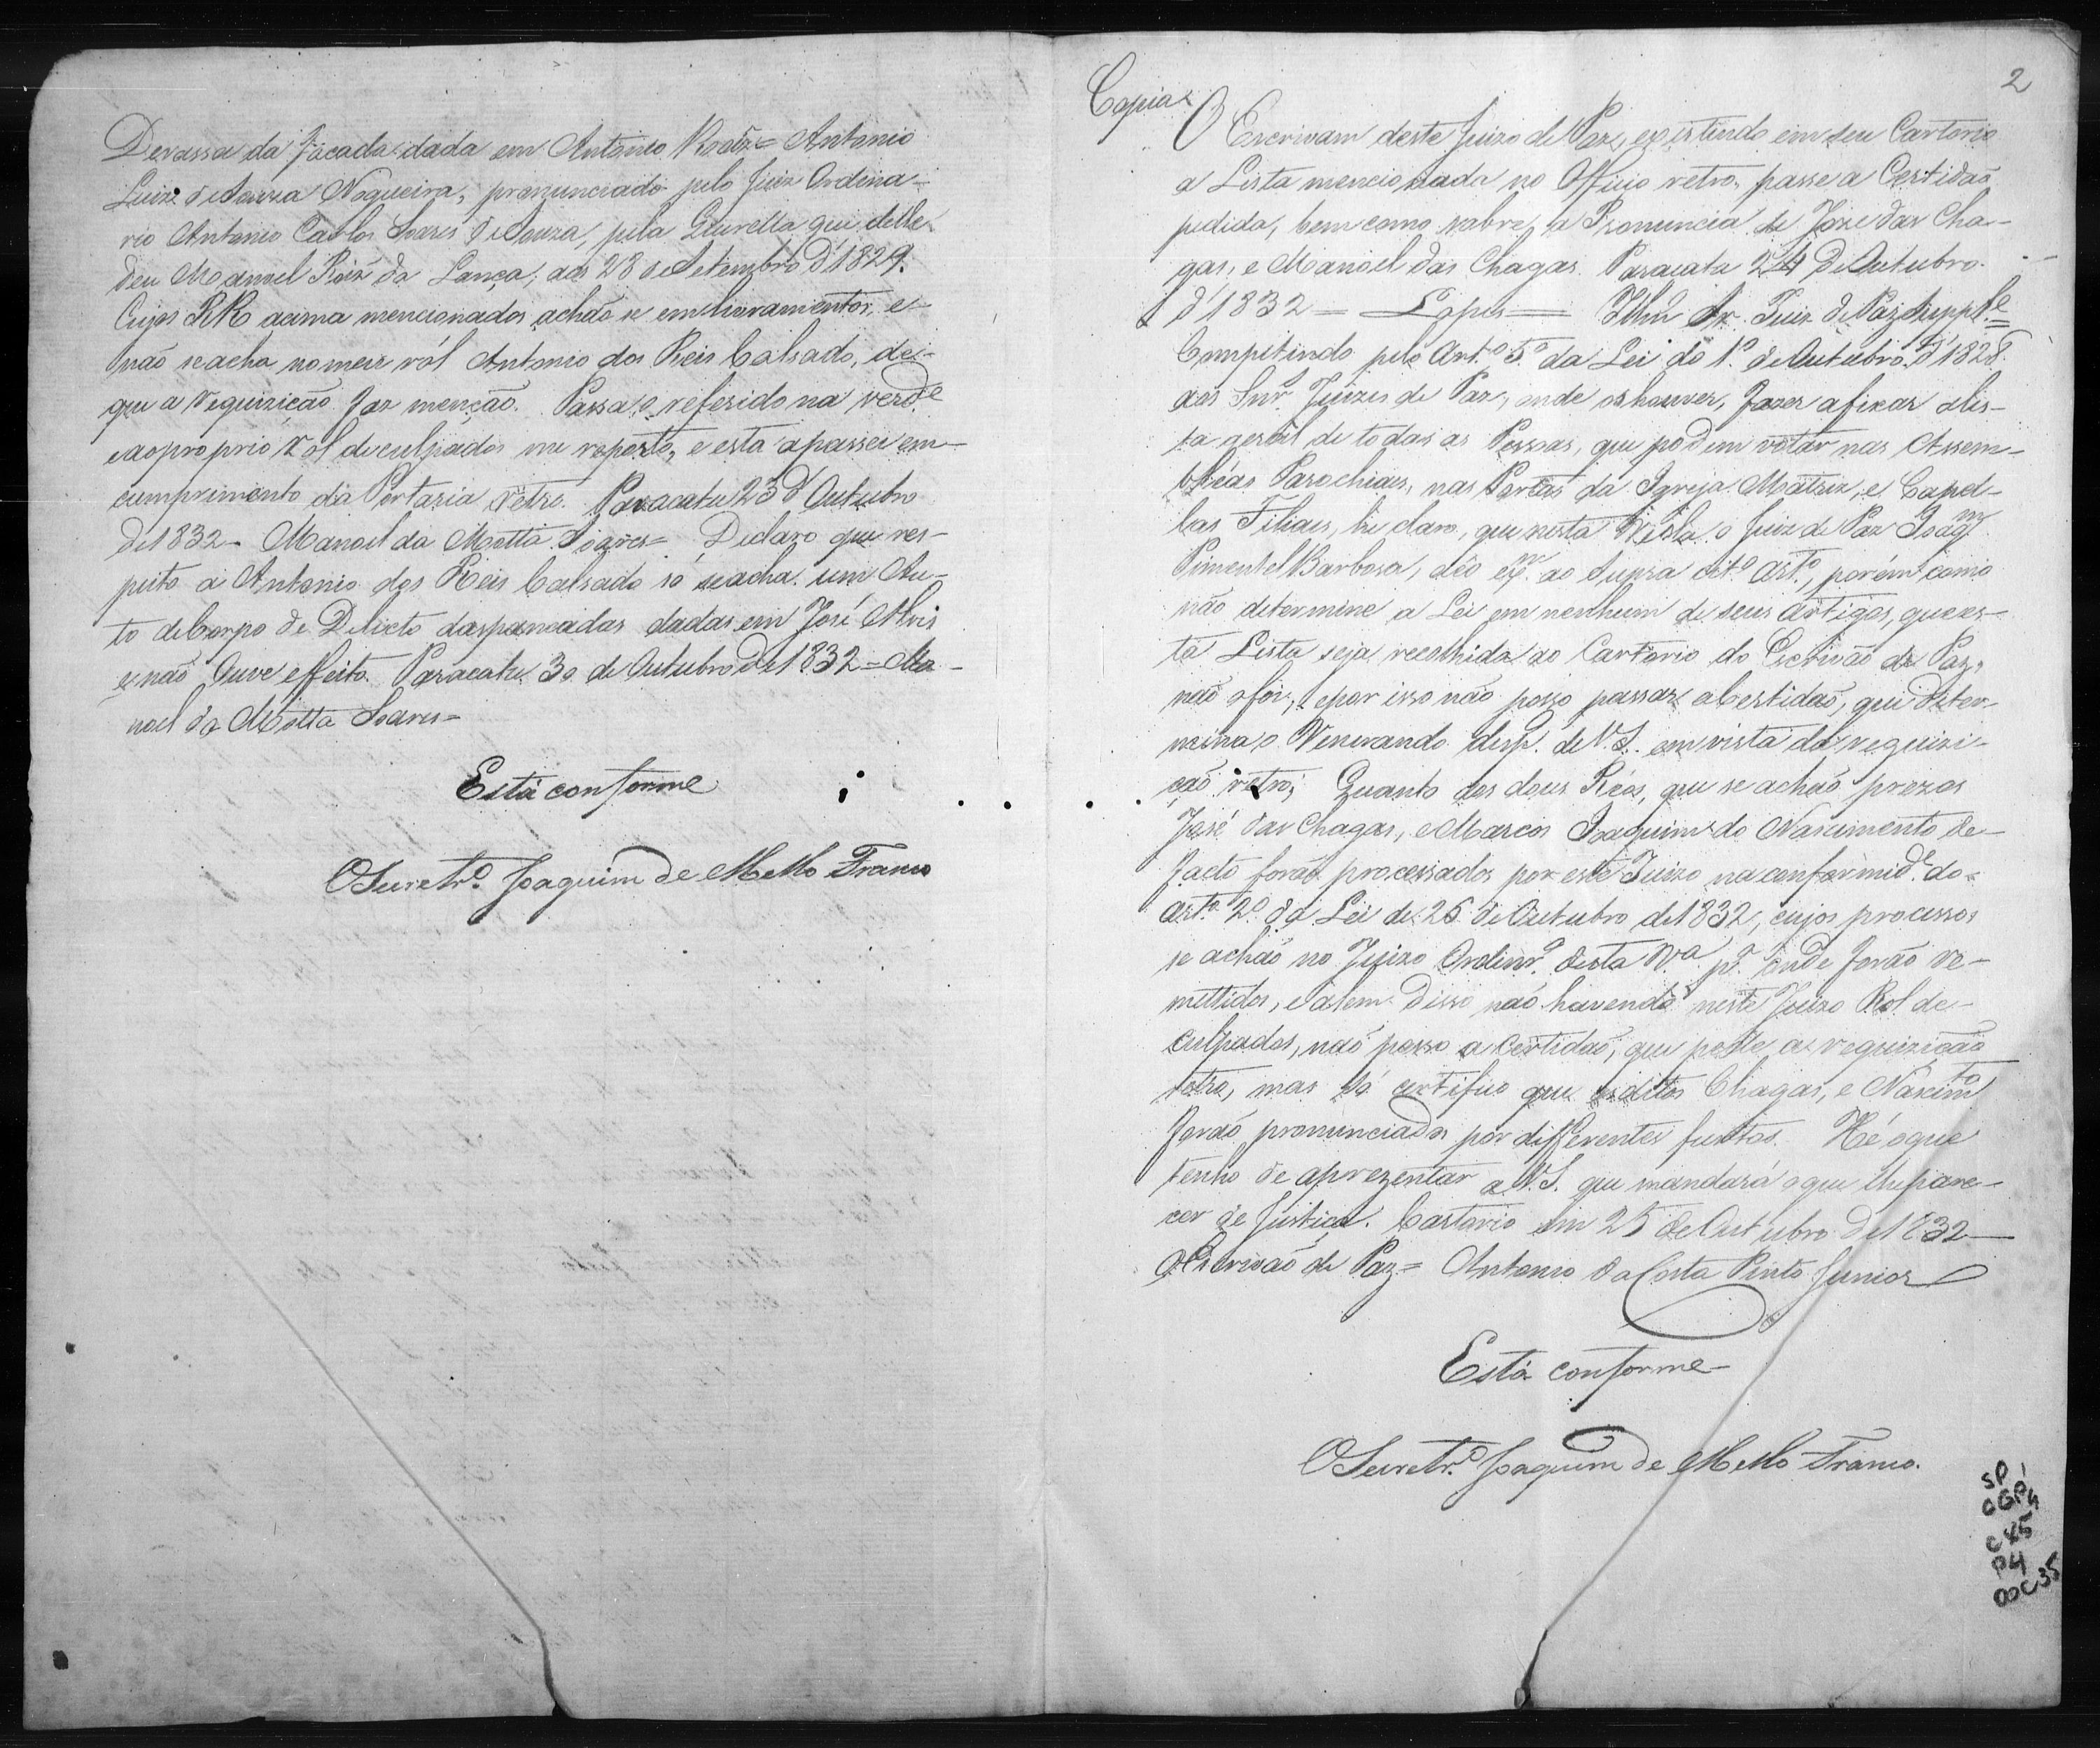 Devassa da facada dada em Antonio Roiz = Antonio
Luiz de Souza Nogueira, pronunciado pelo Juiz Ordina-
rio Antonio Carlos Soares de Souza, pela Querella que delle
deu Manoel Roiz da Lança, aos 28 de Setembro d'1829.
Cujos RR acima mencionados achão se em livramentos, e
não se acha no meu ról Antonio dos Reis Calsado, de
que a requizição faz menção. Passa o referido na verd.e
e ao proprio rol de culpados me reporto, e esta a passei em
cumprimento da Portaria retro. Paracatu 23 d'Outubro
de 1832 - Manoel da Motta Soares = Declaro que res-
peito a Antonio dos Reis Calsado só se acha um Au-
to de Corpo de Delicto das pancadas dadas em José Alvis
e não Ouve effeito. Paracatu 30 de Outubro de 1832 = Ma-
noel da Motta Soares =
Está conforme
O Secretr.o Joaquim de Mello Franco
2
Copia
O Escrivam deste Juizo de Paz, existindo em seu Cartorio
a Lista mencionada no Officio retro, passe a Certidaõ
pedida, bem como sobre a Pronuncia de Joze das Cha-
gas, e Manoel das Chagas. Paracatu 24 de Outubro
d'1832 = Lopes = Illm Sr. Juiz de Paz Supp.te =
Compitindo pelo Art.o 5.o da Lei do 1.o de Outubro d'1828
aos Snr.s Juizes de Paz, onde os houver, fazer afixar a lis-
ta geral de todas as Pessoas, que podem votar nas Assem-
bléas Parochiais, nas Portas da Igreja Matriz, e Capel-
las Filiais, hé claro, que nesta Villa o Juiz de Paz Joaq.m
Pimentel Barbosa, deo ex.m ao supra cit.o art.o, porém como
não determine a Lei em nenhum de seus artigos, que es-
ta Lista seja recolhida ao Cartorio do Escrivão de Paz,
não o foi, e por isso não posso passar a Certidaõ, que deter-
mina o Venerando desp. de V.S. em vista da requizi-
ção retro; Quanto dos dous Réos, que se achão prezos
José das Chagas, e Marcos Joaquim do Nascimento, de
facto foraõ processados por este Juizo na conformid.e do
art.o 2.o da Lei de 26 de Outubro de 1832, cujos processos
se achão no Juizo Ordinr.o desta V.a p.a onde forão re-
mettidos, e alem disso não havendo neste Juizo Rol de
culpados, naõ posso a Certidaõ, que pede a requizição
retro, mas só certifico que os ditos Chagas, e Nascim.to
foraõ pronunciados por differentes furtos. Hé o que
tenho de aprezentar a V.S. que mandará o que lhe pare-
cer de Justiça. Cartorio em 25 de Outubro de 1832 -
O Escrivaõ de Paz = Antonio da Costa Pinto Junior
Está conforme
O Secretr.o Joaquim de Mello Franco.
SP
OGP4
CX5
P4
DOC35